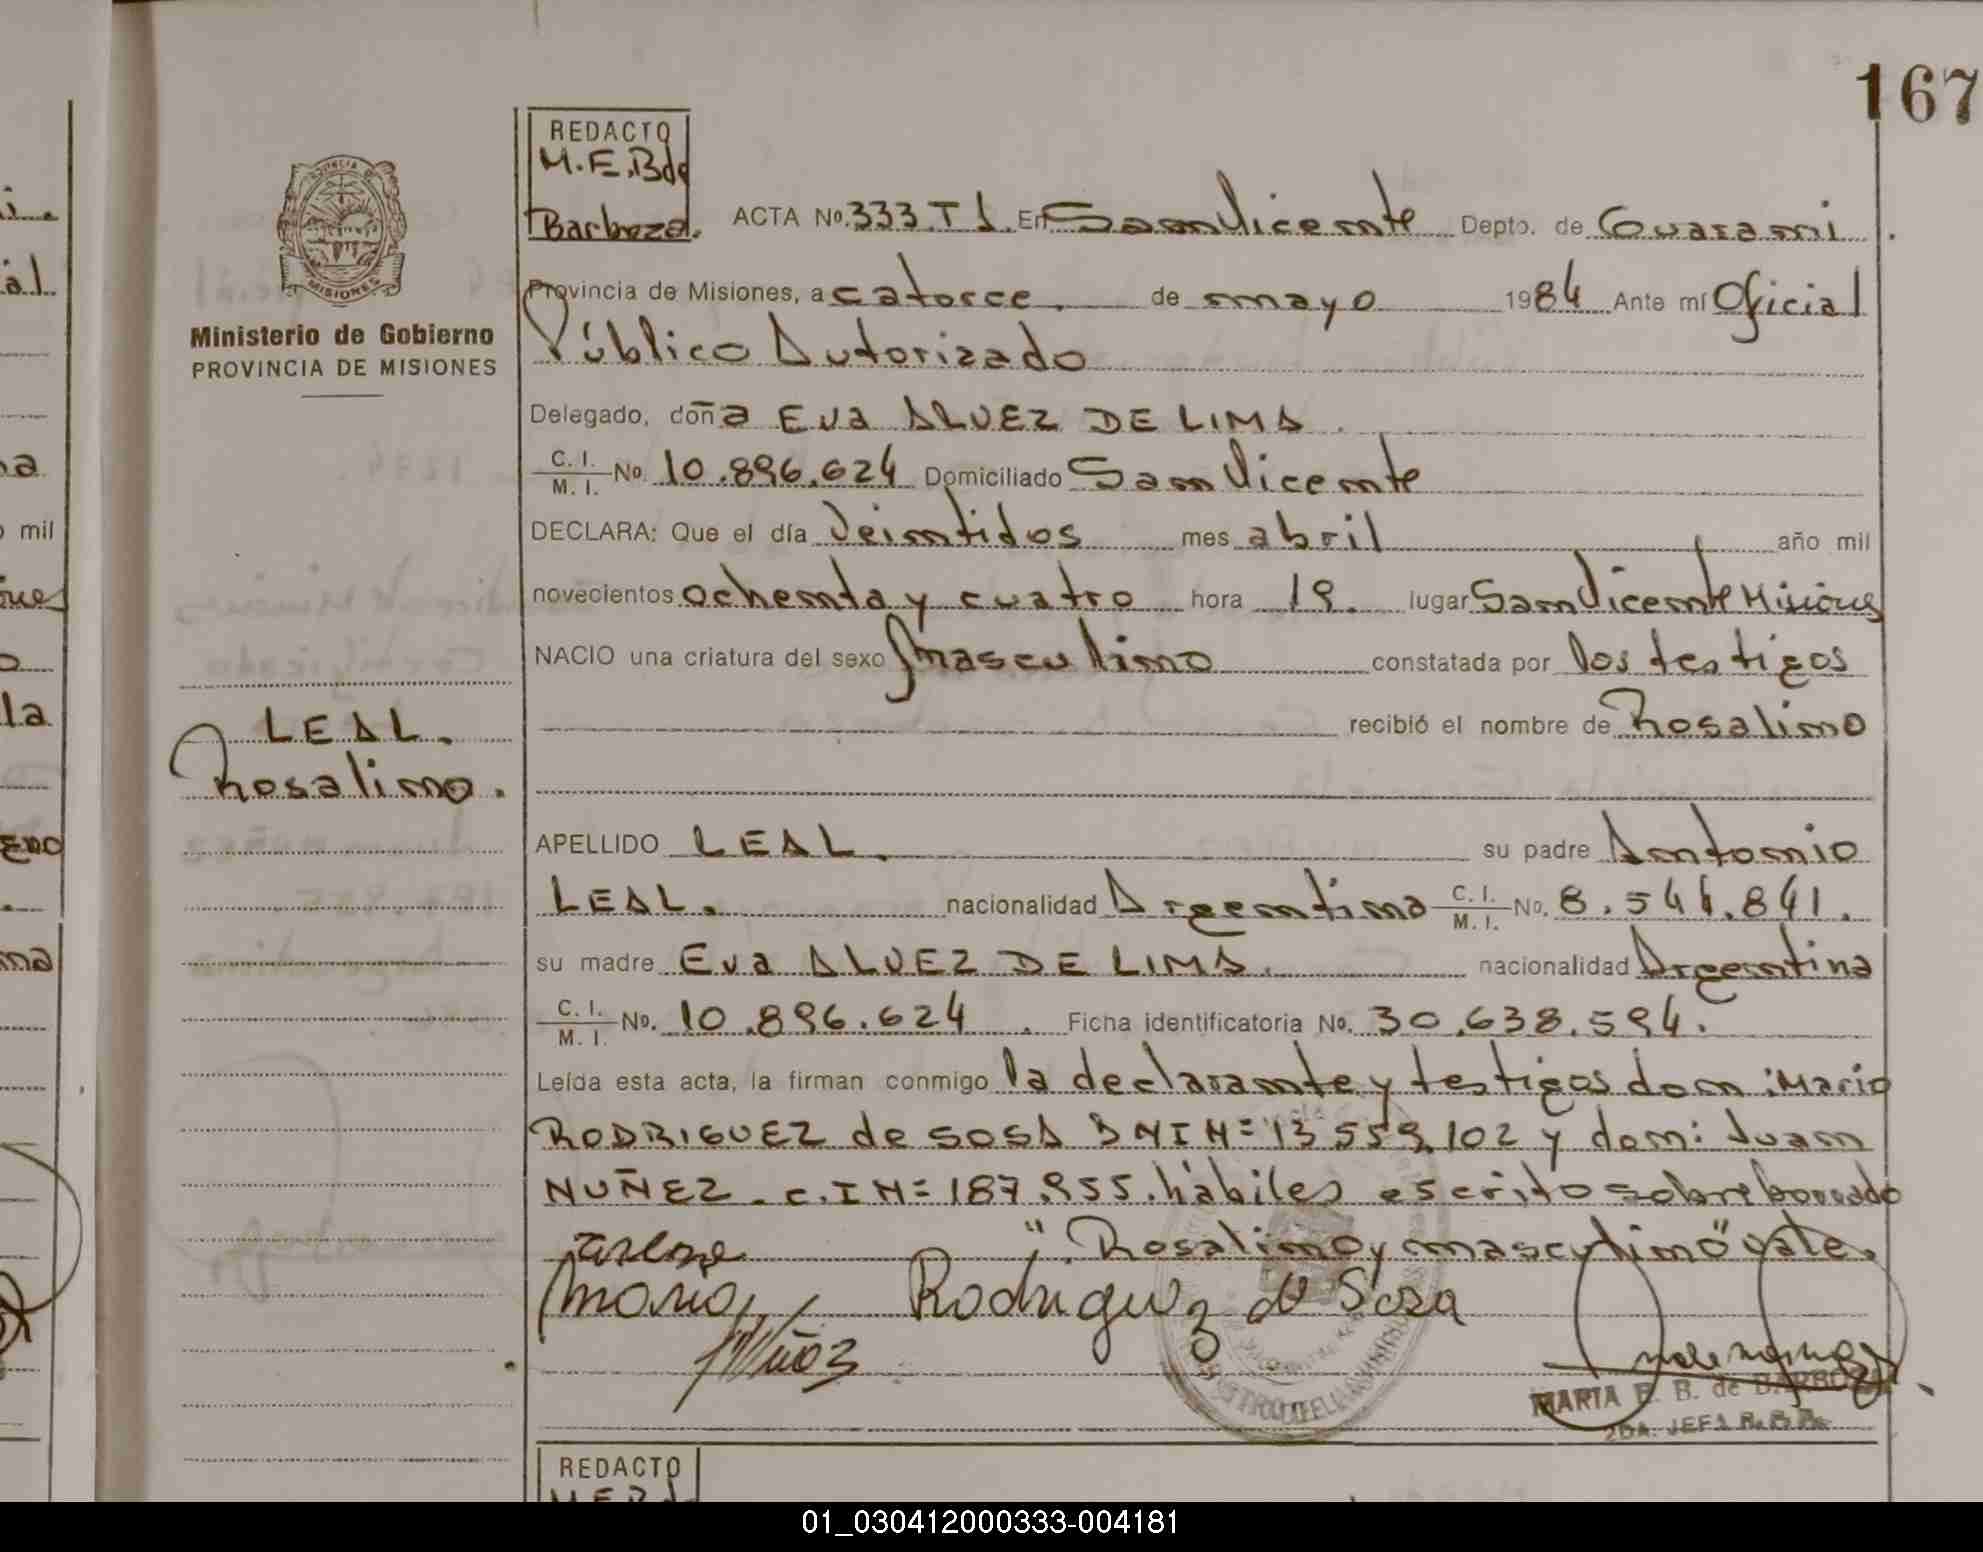 167
REDACTO
M.E.B de
Barboza.
ACTA No. 333.T I. En San Vicente Depto. de Guarani.
Provincia de Misiones, a catorce. de mayo 1984 Ante mí Oficial
Público Autorizado
Delegado, doña Eva ALVEZ DE LIMA.
C. I. / M. I. No. 10.896.624 Domiciliado San Vicente
DECLARA: Que el día Veintidos mes abril año mil
novecientos ochenta y cuatro hora 19. lugar San Vicente Misiones
NACIO una criatura del sexo masculino constatada por los testigos
recibió el nombre de Rosalino
APELLIDO LEAL. su padre Antonio
LEAL. nacionalidad Argentino C. I. / M. I. No. 8.544.841.
su madre Eva ALVEZ DE LIMA. nacionalidad Argentina
C. I. / M. I. No. 10.896.624. Ficha identificatoria No. 30.638.594.
Leída esta acta, la firman conmigo la declarante y testigos don: Mario
RODRIGUEZ de SOSA DNI N= 13.559.102 y don: Juan
NUÑEZ. C.I N= 187.955. hábiles escrito sobreborrado
"Rosalino y masculino" vale.
Mario Rodriguez de Soza
Nuñez
MARIA E. B. de BARBOZA
2DA. JEFA R. P.
PROVINCIA DE
MISIONES
Ministerio de Gobierno
PROVINCIA DE MISIONES
LEAL.
Rosalino.
REDACTO
01_030412000333-004181